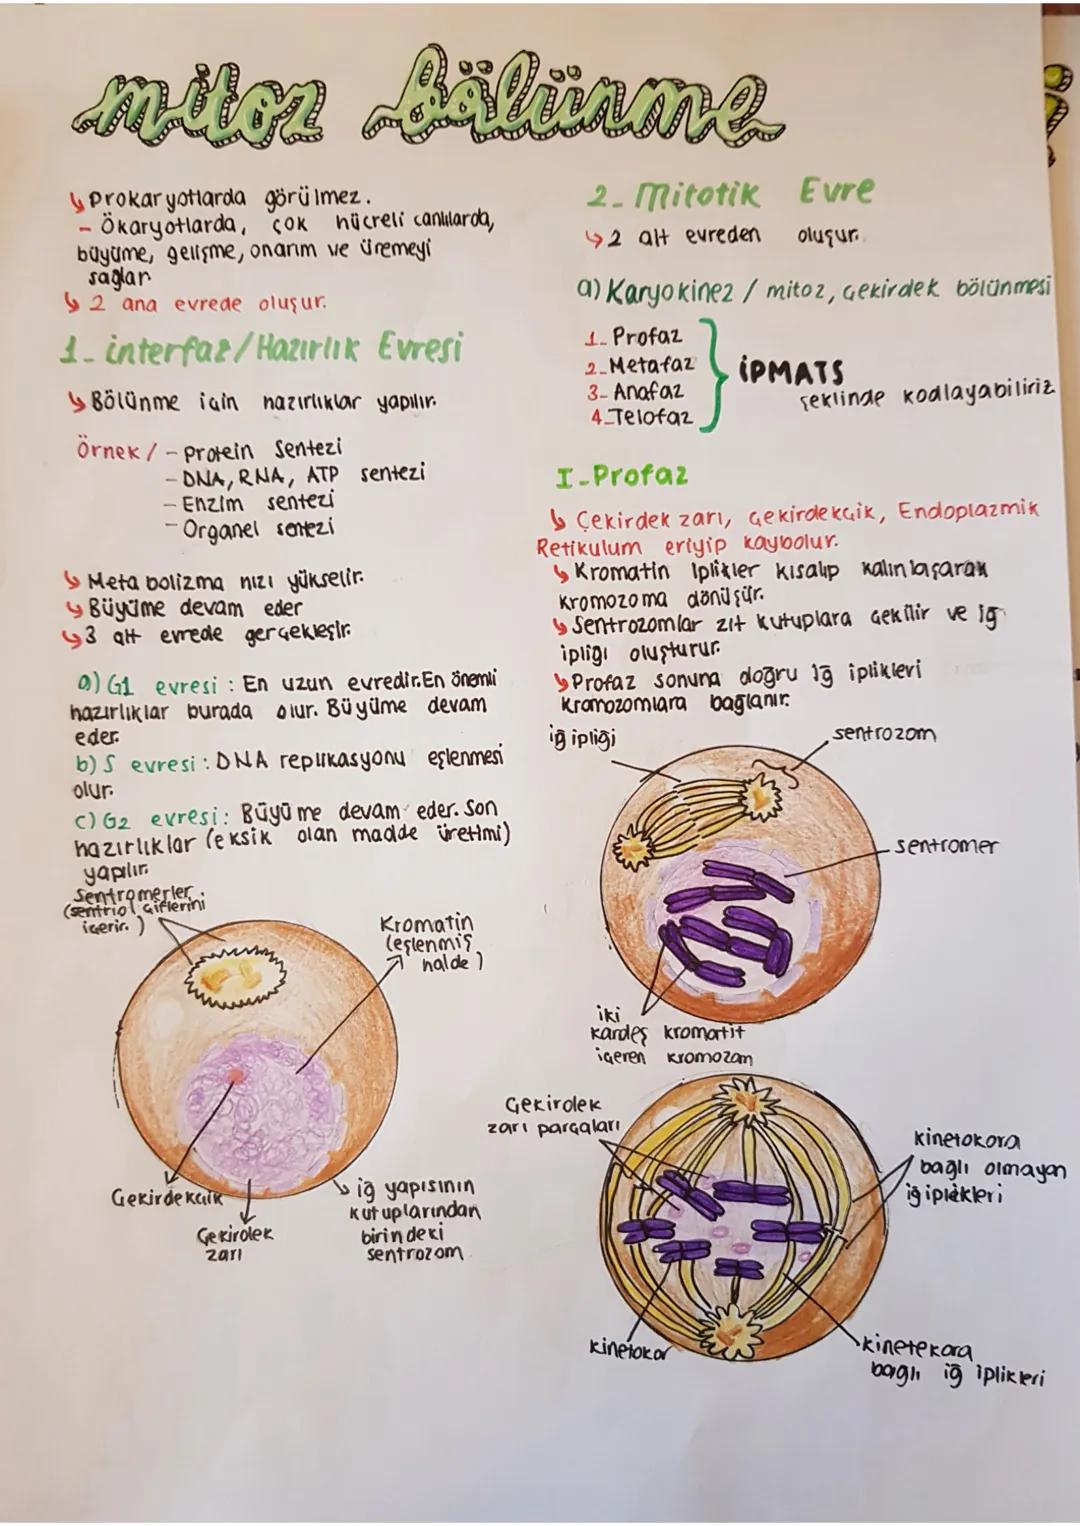 mitoz bölünme
↳ Prokaryotlarda görülmez.
- Ökaryotlarda, çok hücreli canlılarda,
büyüme, gelişme, onarım ve üremeyi
sağlar
↳ 2 ana evrede oluşur.
1- interfaz/Hazırlık Evresi
↳ Bölünme için hazırlıklar yapılır.
Örnek / - Protein Sentezi
- DNA, RNA, ATP sentezi
- Enzim sentezi
- Organel sentezi
↳ Metabolizma hızı yükselir.
↳ Büyüme devam eder
↳ 3 alt evrede gerçekleşir.
a) G1 evresi : En uzun evredir. En önemli
hazırlıklar burada olur. Büyüme devam
eder.
b) S evresi : DNA replikasyonu eşlenmesi
olur.
c) G2 evresi : Büyüme devam eder. Son
hazırlıklar (eksik olan madde üretimi)
yapılır.
Sentromerler
(sentriol çiflerini
içerir.)
Kromatin
(eşlenmiş
halde)
Çekirdekçik
Çekirdek
zarı
iğ yapısının
kutuplarından
birindeki
sentrozom
2- Mitotik Evre
↳ 2 alt evreden oluşur.
a) Karyokinez / mitoz, çekirdek bölünmesi
1- Profaz
2- Metafaz
3- Anafaz
4- Telofaz
İPMATS
şeklinde kodlayabiliriz
I- Profaz
↳ Çekirdek zarı, çekirdekçik, Endoplazmik
Retikulum eriyip kaybolur.
↳ Kromatin İplikler kısalıp kalınlaşarak
kromozoma dönüşür.
↳ Sentrozomlar zıt kutuplara çekilir ve iğ
ipliği oluşturur.
↳ Profaz sonuna doğru iğ iplikleri
kromozomlara bağlanır.
iğ ipliği
sentrozom
sentromer
iki
kardeş kromatit
içeren kromozom
Çekirdek
zarı parçaları
kinetokora
bağlı olmayan
iğ iplikleri
kinetokor
kinetekora
bağlı iğ iplikleri